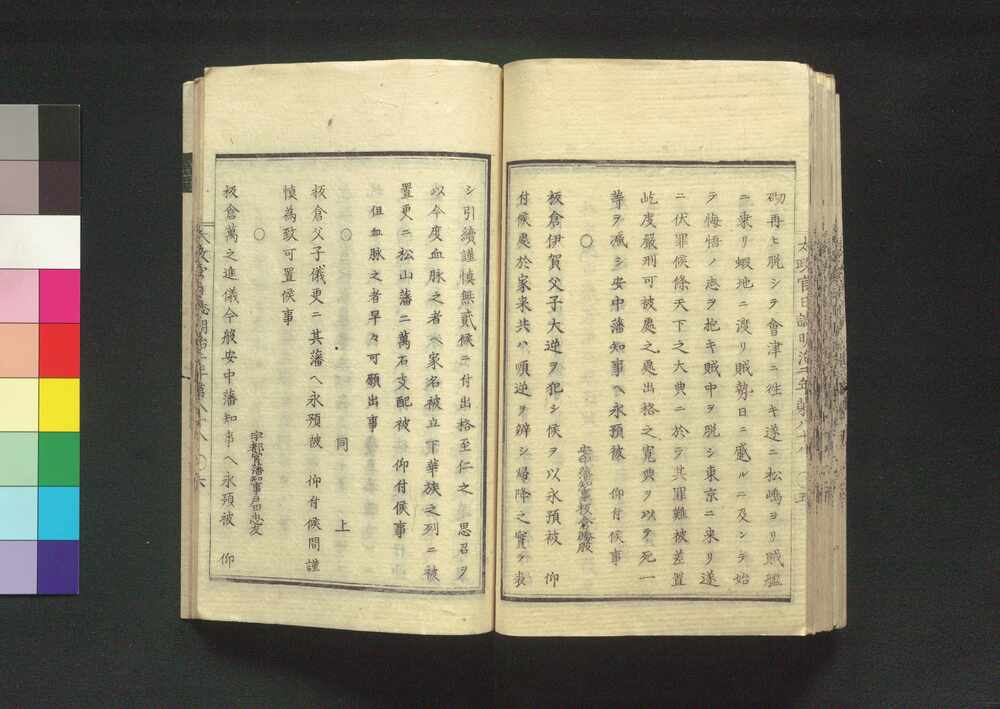 砌再ヒ脱シテ會津ニ往キ遂ニ松嶋ヨリ賊艦
ニ乘リ蝦地ニ渡リ賊勢日ニ蹙ルニ及ンテ始
テ悔悟ノ志ヲ抱キ賊中ヲ脱シ東京ニ来リ遂
ニ伏罪候條天下之大典ニ於テ其罪難被差置
屹度嚴刑可被處之處出格之寛典ヲ以テ死一
等ヲ减シ安中藩知事ヘ永預被 仰付候事
○ 安中藩知事板倉勝殷
板倉伊賀父子大逆ヲ犯シ候ヲ以永預被 仰
付候處於家来共ハ順逆ヲ辨シ歸降之實ヲ表
シ引續謹慎無貳候ニ付出格至仁之 思召ヲ
以今度血脉之者ヘ家名被立下華族之列ニ被
置更ニ松山藩二萬石支配被 仰付候事
但血脉之者早々可願出事
○ 同 上
板倉父子儀更ニ其藩ヘ永預被 仰付候間謹
慎為致可置候事
○ 宇都宮藩知事戸田忠友
板倉萬之進儀今般安中藩知事ヘ永預被 仰